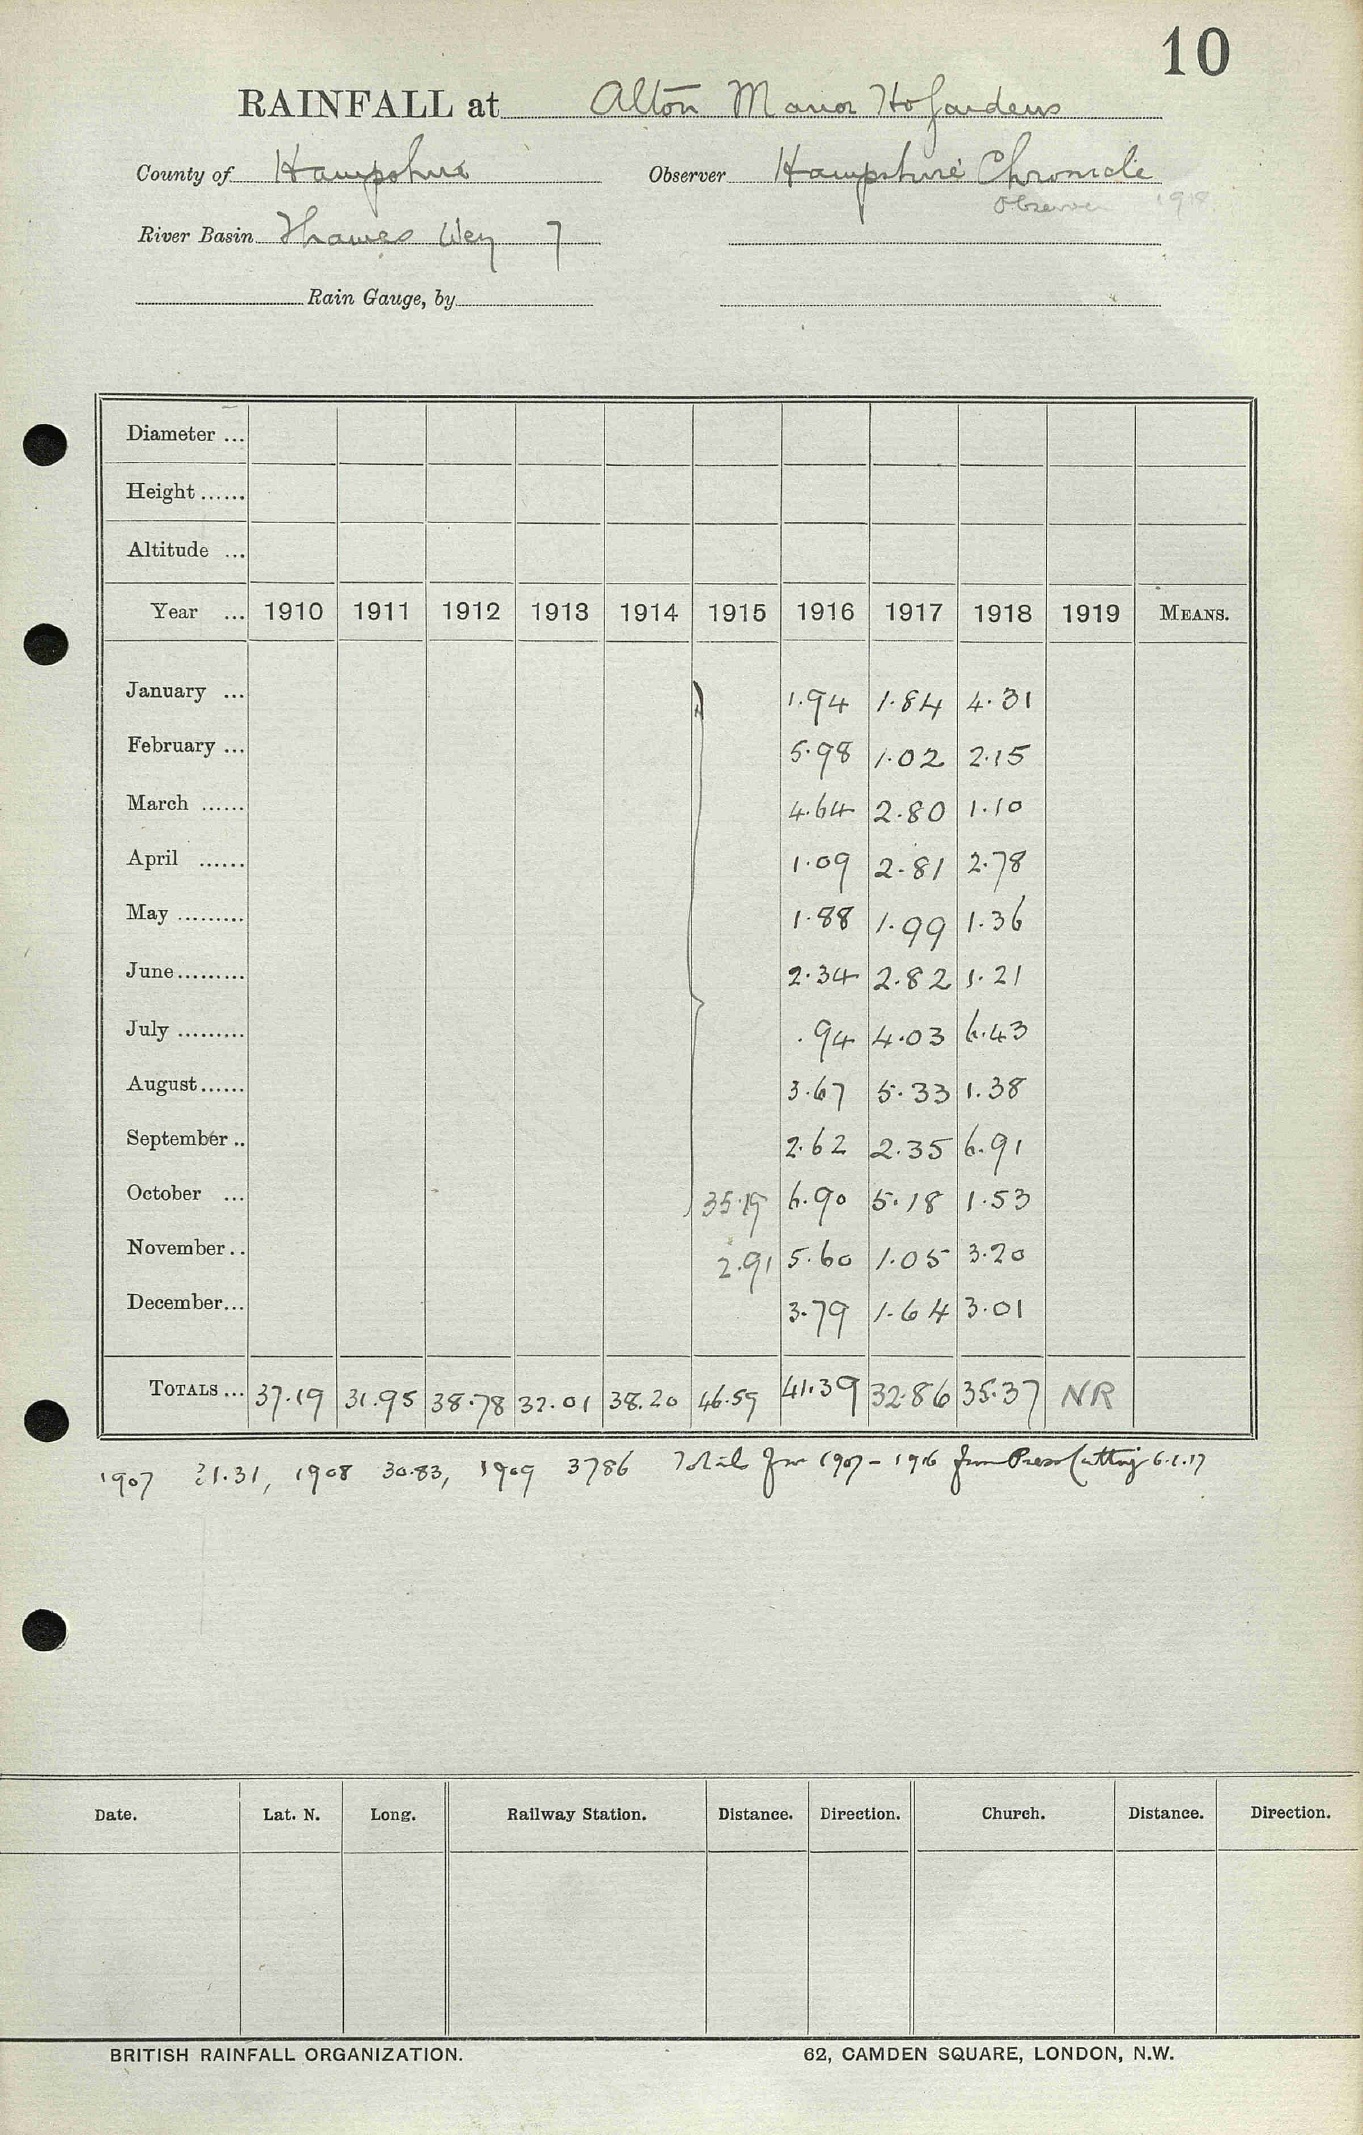 10
RAINFALL at Alton Manor Ho Gardens
County of Hampshire Observer Hampshire Chronicle
Observer 1918
River Basin Thames Wey 7
Rain Gauge, by
Diameter ...
Height ......
Altitude ...
Year ... 1910 1911 1912 1913 1914 1915 1916 1917 1918 1919 MEANS.
January ... 1.94 1.84 4.31
February ... 5.98 1.02 2.15
March ...... 4.64 2.80 1.10
April ...... 1.09 2.81 2.78
May ......... 1.88 1.99 1.36
June ......... 2.34 2.82 1.21
July ......... .94 4.03 6.43
August ...... 3.67 5.33 1.38
September .. 2.62 2.35 6.91
October ... 35.19 6.90 5.18 1.53
November .. 2.91 5.60 1.05 3.20
December ... 3.79 1.64 3.01
TOTALS ... 37.19 31.95 38.78 32.01 38.20 46.59 41.39 32.86 35.37 NR
1907 31.31, 1908 30.83, 1909 3786 Totals for 1907 - 1916 from Press Cutting 6.1.17
Date. Lat. N. Long. Railway Station. Distance. Direction. Church. Distance. Direction.
BRITISH RAINFALL ORGANIZATION. 62, CAMDEN SQUARE, LONDON, N.W.